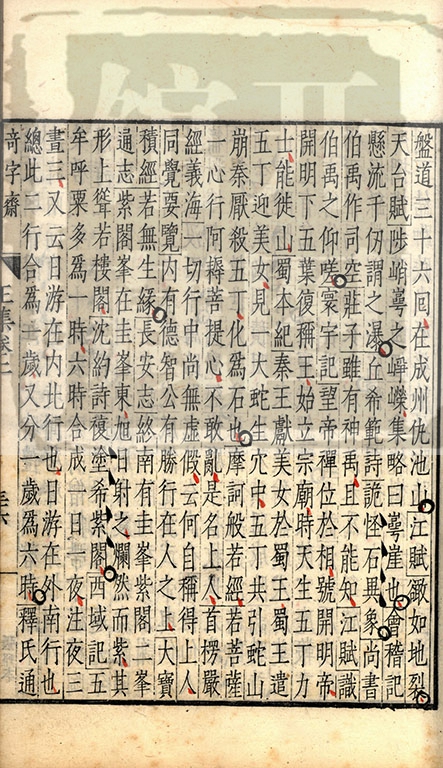 盤道三十六回在成州仇池山江賦鏾如地裂
天台賦陟峭崿之崢嶸集略曰崿崖也會稽記
懸流千仞謂之瀑丘希範詩詭怪石異象尚書
伯禹作司空莊子雖有神禹且不能知江賦識
伯禹之仰嗟寰宇記望帝禪位於相號開明帝
開明下五葉復稱王始立宗廟時天生五丁力
士能徙山蜀本紀秦王獻美女於蜀王蜀王遣
五丁迎美女見一大蛇生穴中五丁共引蛇山
崩秦厭殺五丁化爲石也摩訶般若經若菩薩
一心行阿耨菩提心不敢亂是名上人首楞嚴
經義海一切行中尚無虛假云何自稱得上人
同覺要覽內有德智公有勝行在人之上大寶
積經若無生緣長安志終南有圭峯紫閣二峯
通志紫閣峯在圭峯東旭日射之爛然而紫其
形上聳若樓閣沈約詩複塗希紫閣西域記五
牟呼栗多爲一時六時合成一日一夜注夜三
晝三又云日游在內北行也日游在外南行也
總此二行合爲一歲又分一歲爲六時釋氏通
奇字齋